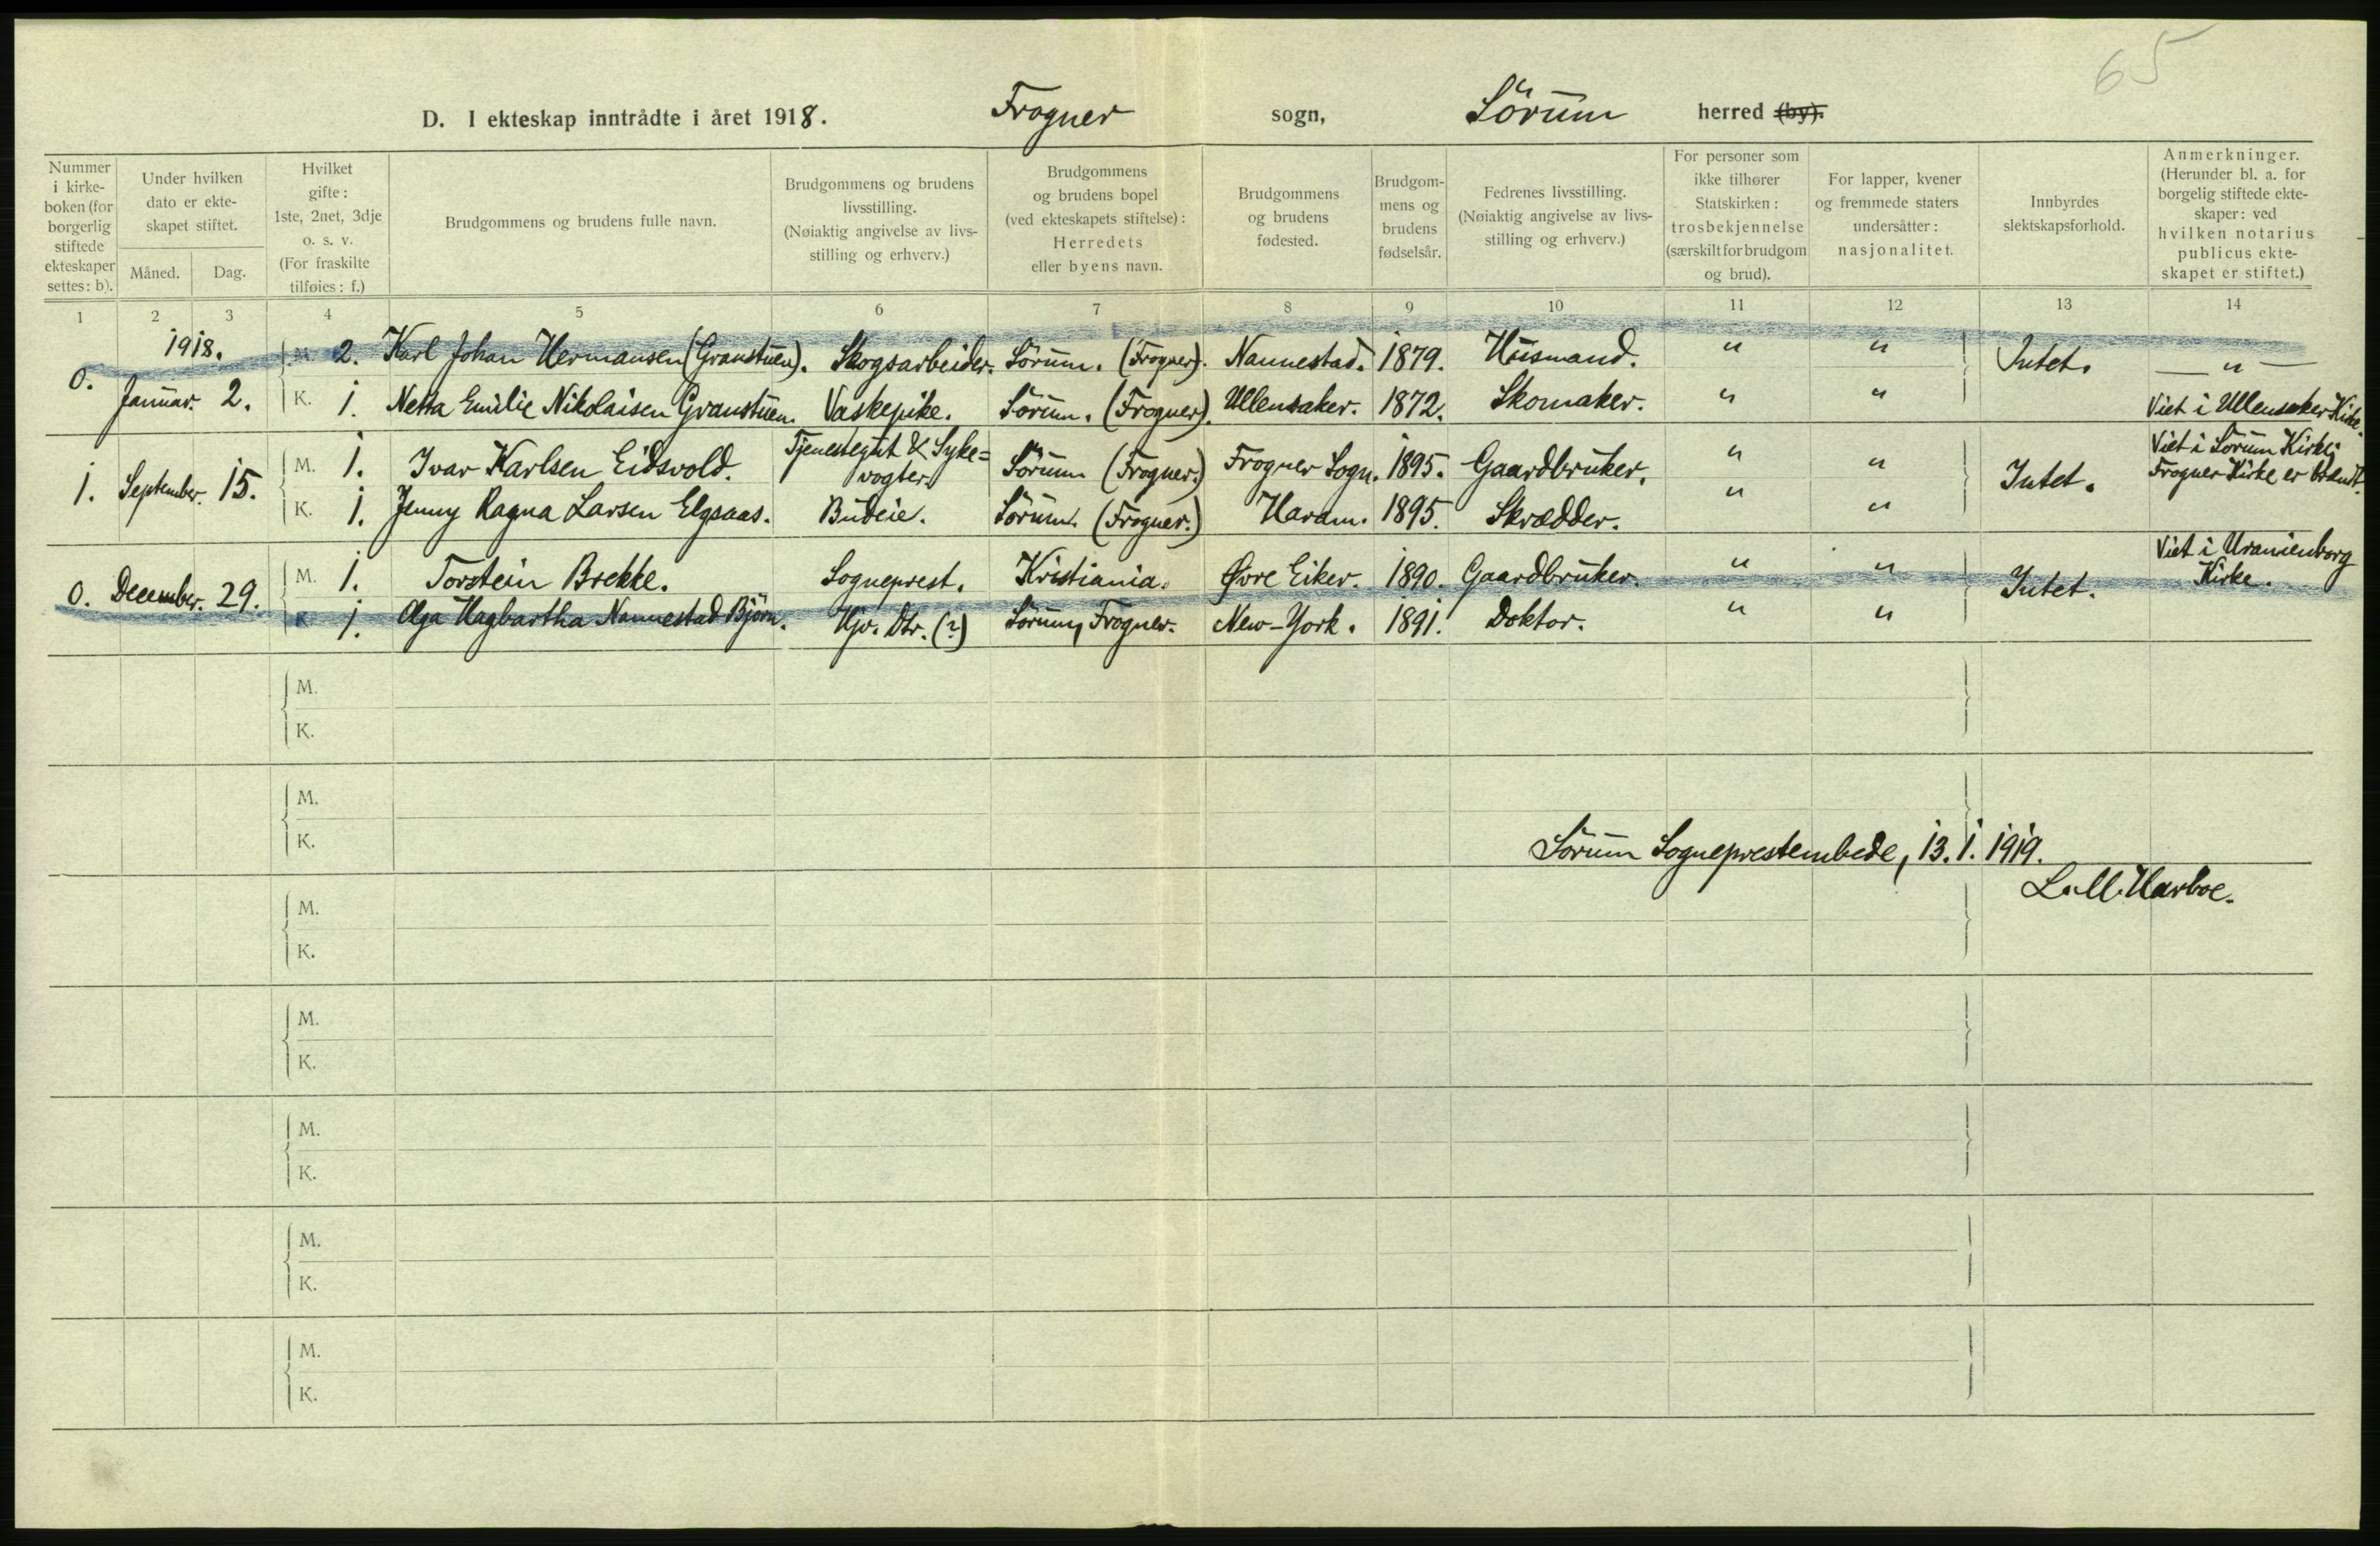 65
D. I ekteskap inntrådte i året 1918. Frogner sogn, Sörum herred (by).
Nummer i kirke-boken (for borgerlig stiftede ekteskaper settes: b).
Under hvilken dato er ekte-skapet stiftet.
Måned. Dag.
Hvilket gifte: 1ste, 2net, 3dje o. s. v. (For fraskilte tilføies: f.)
Brudgommens og brudens fulle navn.
Brudgommens og brudens livsstilling. (Nøiaktig angivelse av livs-stilling og erhverv.)
Brudgommens og brudens bopel (ved ekteskapets stiftelse): Herredets eller byens navn.
Brudgommens og brudens fødested.
Brudgom-mens og brudens fødselsår.
Fedrenes livsstilling. (Nøiaktig angivelse av livs-stilling og erhverv.)
For personer som ikke tilhører Statskirken: trosbekjennelse (særskilt for brudgom og brud).
For lapper, kvener og fremmede staters undersåtter: nasjonalitet.
Innbyrdes slektskapsforhold.
Anmerkninger. (Herunder bl. a. for borgelig stiftede ekte-skaper: ved hvilken notarius publicus ekte-skapet er stiftet.)
1 2 3 4 5 6 7 8 9 10 11 12 13 14
1918.
0. M. 2. Karl Johan Hermansen (Granstuen). Skogsarbeider. Sörum. (Frogner). Nannestad. 1879. Husmand. " " Intet. — " —
Januar. 2. K. 1. Netta Emilie Nikolaisen Granstuen. Vaskepike. Sörum. (Frogner). Ullensaker. 1872. Skomaker. " " Viet i Ullensaker Kirke.
1. September. 15. M. 1. Ivar Karlsen Eidsvold. Tjenestegut & Syke=vogter. Sörum (Frogner.) Frogner Sogn. 1895. Gaardbruker. " " Intet. Viet i Sörum Kirke; Frogner Kirke er brændt.
K. 1. Jenny Ragna Larsen Elgsaas. Budeie. Sörum. (Frogner.) Haram. 1895. Skrædder. " "
0. December. 29. M. 1. Torstein Brekke. Sogneprest. Kristiania. Øvre Eiker. 1890. Gaardbruker. " " Intet. Viet i Uranienborg Kirke.
K. 1. Olga Hagbartha Nannestad Björn. Hjv. Dtr. (?) Sörum, Frogner. New-York. 1891. Doktor. " "
M.
K.
M.
K.
Sörum Sogneprestembede, 13. 1. 1919.
Harboe.
M.
K.
M.
K.
M.
K.
M.
K.
M.
K.